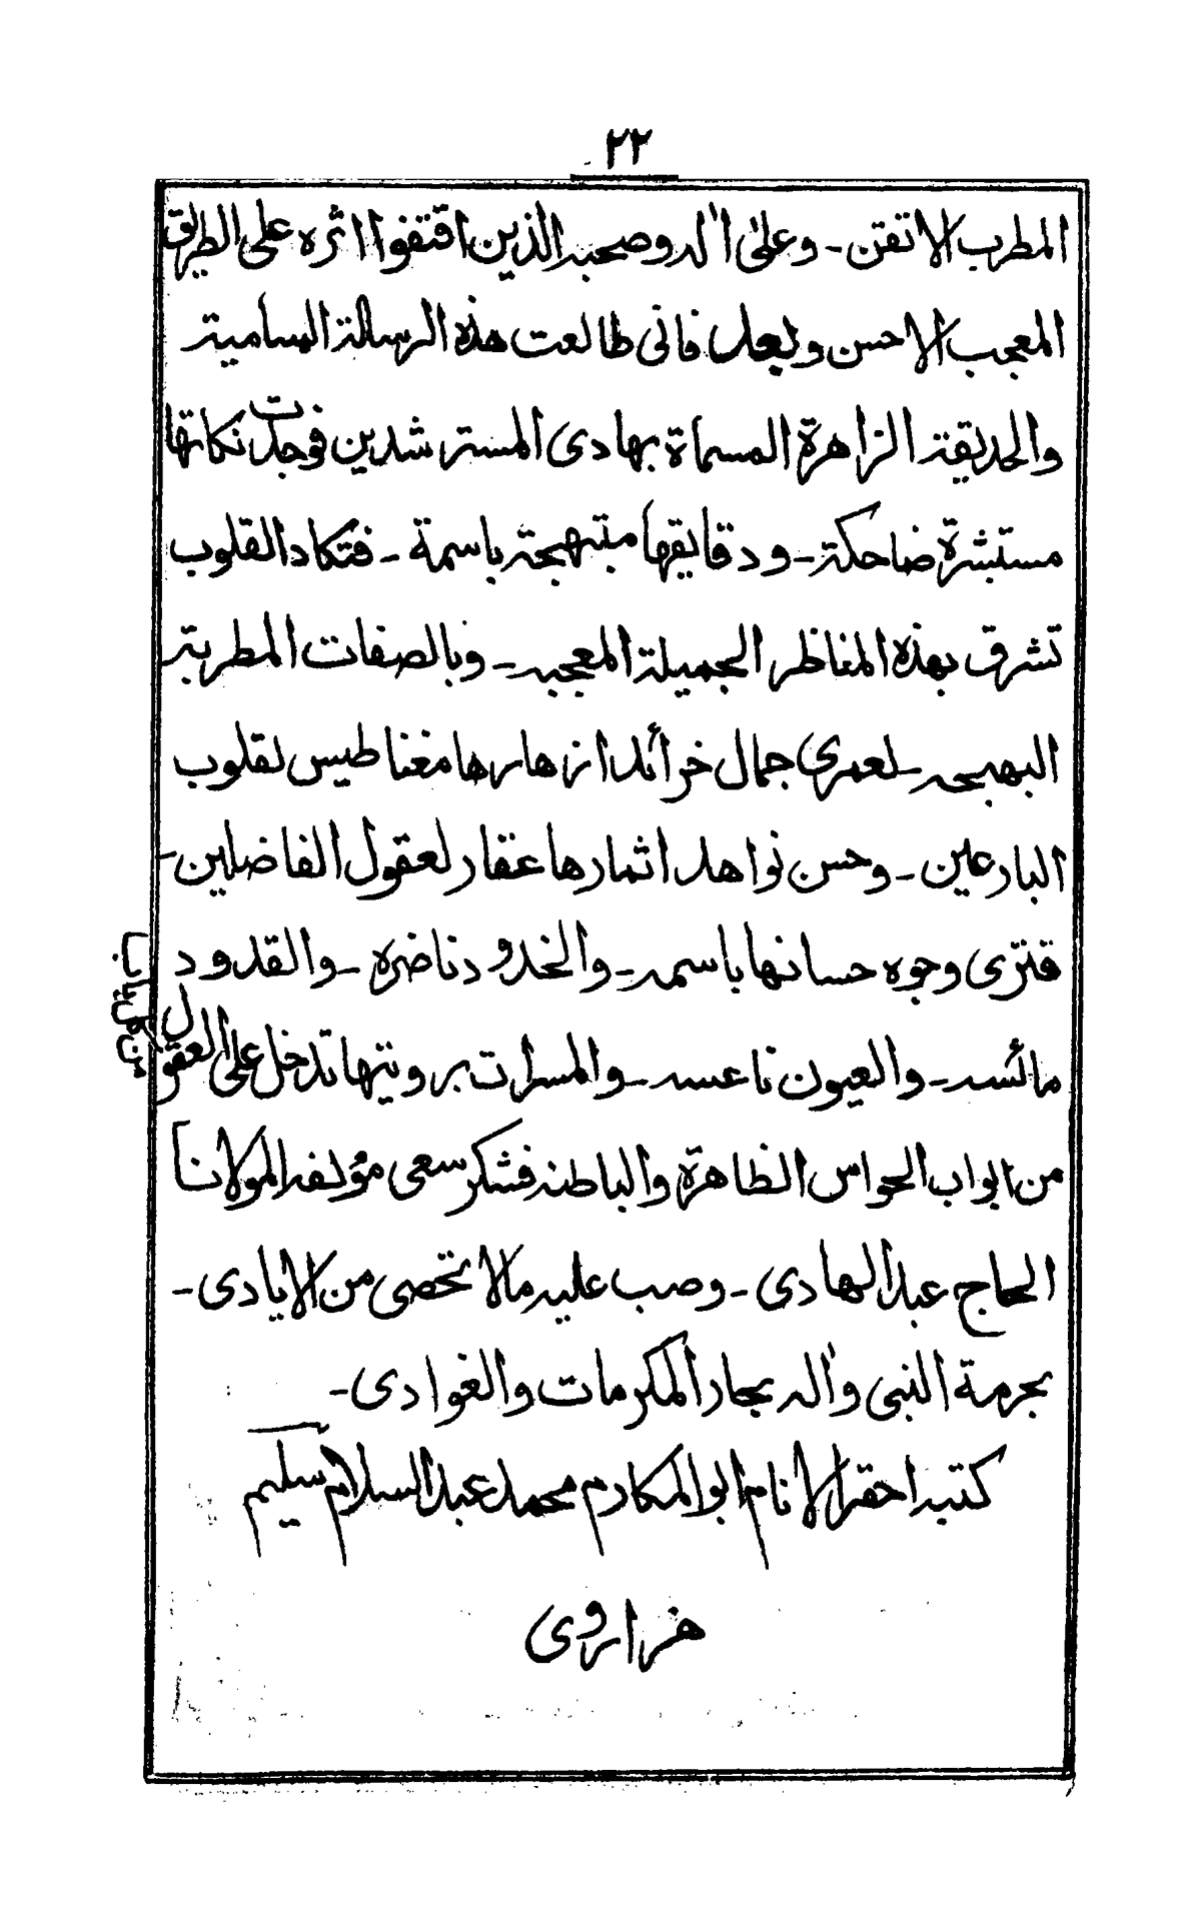 ٢٢
المطرب الاتقن - وعلى اله وصحبه الذين اقتفوا اثره على الطريق
المعجب الاحسن وبعد فانى طالعت هذه الرسالة السامية
والحديقة الزاهرة المسماة بهادى المسترشدين فوجدت نكاتها
مستبشرة ضاحكة - ودقايقها مبتهجة باسمة - فتكاد القلوب
تشرق بهذه المناظر الجميلة المعجبه - وبالصفات المطربة
البهيجه - لعمرى جمال خرائد ازهارها مغناطيس لقلوب
البارعين - وحسن نواهد اثمارها عقار لعقول الفاضلين -
فترى وجوه حسانها باسمه - والخدود ناضره - والقدود
مائسه - والعيون ناعسه - والمسرات برويتها تدخل على العقول
من ابواب الحواس الظاهرة والباطنه فشكر سعى مؤلفه المولانا
الحاج عبد الهادى - وصب عليه مالا تحصى من الايادى -
بحرمة النبى واله بحار المكرمات والغوادى -
كتبه احقر الانام ابو المكارم محمد عبد السلام سليم
هزاروى